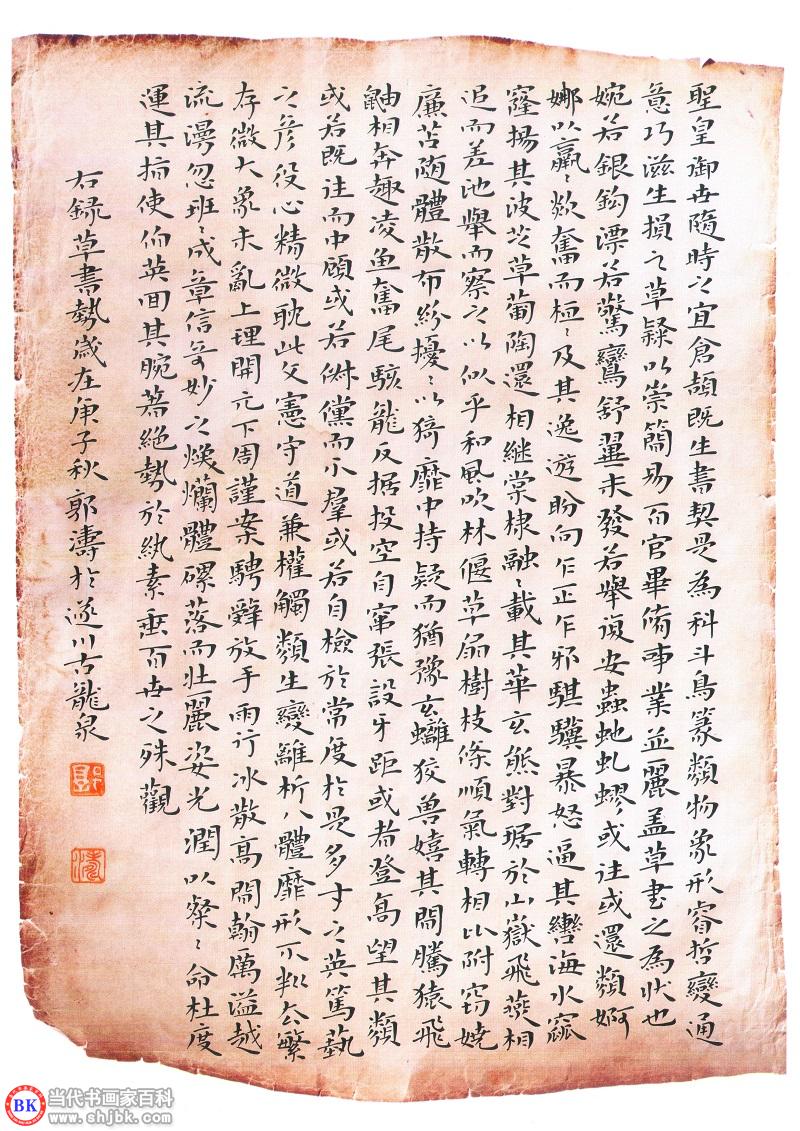 聖皇御世隨時之宜倉頡既生書契是為科斗鳥篆類物象形睿哲變通
意巧滋生損之草隸以崇簡易百官畢脩事業並麗蓋草書之為狀也
婉若銀鉤漂若驚鸞舒翼未發若舉復安蟲虵虬蟉或往或還類婀
娜以羸〻欻奮而桓〻及其逸遊盼向乍正乍邪騏驥暴怒逼其轡海水窳
窿揚其波芝草葡陶還相繼棠棣融〻載其華玄熊對踞於山嶽飛燕相
追而差池舉而察之以似乎和風吹林偃草扇樹枝條順氣轉相比附窈嬈
廉苫随體散布紛擾〻以猗靡中持疑而猶豫玄螭狡兽嬉其間騰猿飛
鼬相奔趣凌鱼奮尾駭龍反据投空自竄張設牙距或者登高望其類
或若既往而中顧或若俶儻而不羣或若自檢於常度於是多才之英篤藝
之彦役心精微耽此文憲守道兼權觸類生變離析八體靡形不判去繁
存微大象未亂上理開元下周謹案騁辭放手雨行冰散高間翰厲溢越
流漫忽班〻成章信奇妙之煥爛體磥落而壯麗姿光潤以粲〻命杜度
運其指使伯英回其腕著絕勢於紈素垂百世之殊觀
右録草書勢歲在庚子秋郭濤於遂川古龍泉
BK 当代书画家百科
www.shjbk.com